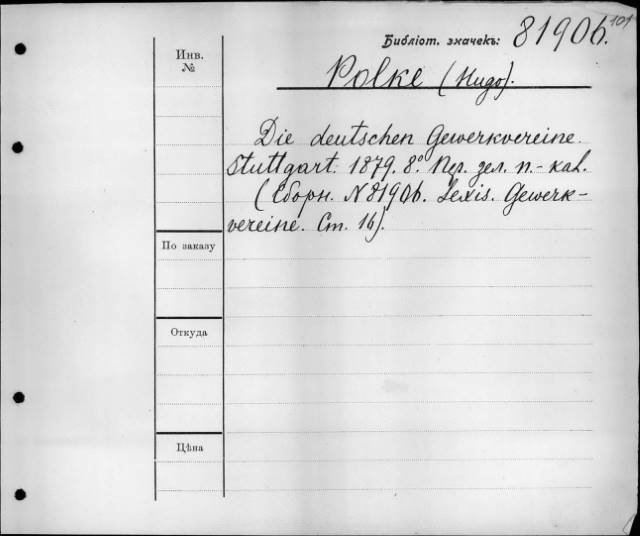 101
Библіот. значекъ: 81906.
Инв.
№
Polke (Hugo).
Die deutschen Gewerkvereine.
Stuttgart. 1879. 8º Пер. зел. п.-кал.
(Сборн. N 81906. Lexis. Gewerk-
vereine. Ст. 16).
По заказу
Откуда
Цѣна